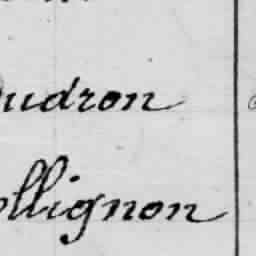 oudron
ollignon